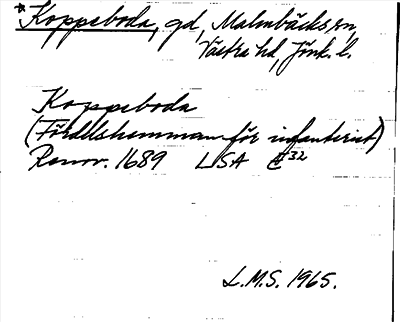 *Koppeboda, gd, Malmbäcks sn,
Västra hd, Jönk. l.
Koppeboda
(Fördelshemman för infanterist)
Renov. 1689 LSA E32
L.M.S. 1965.